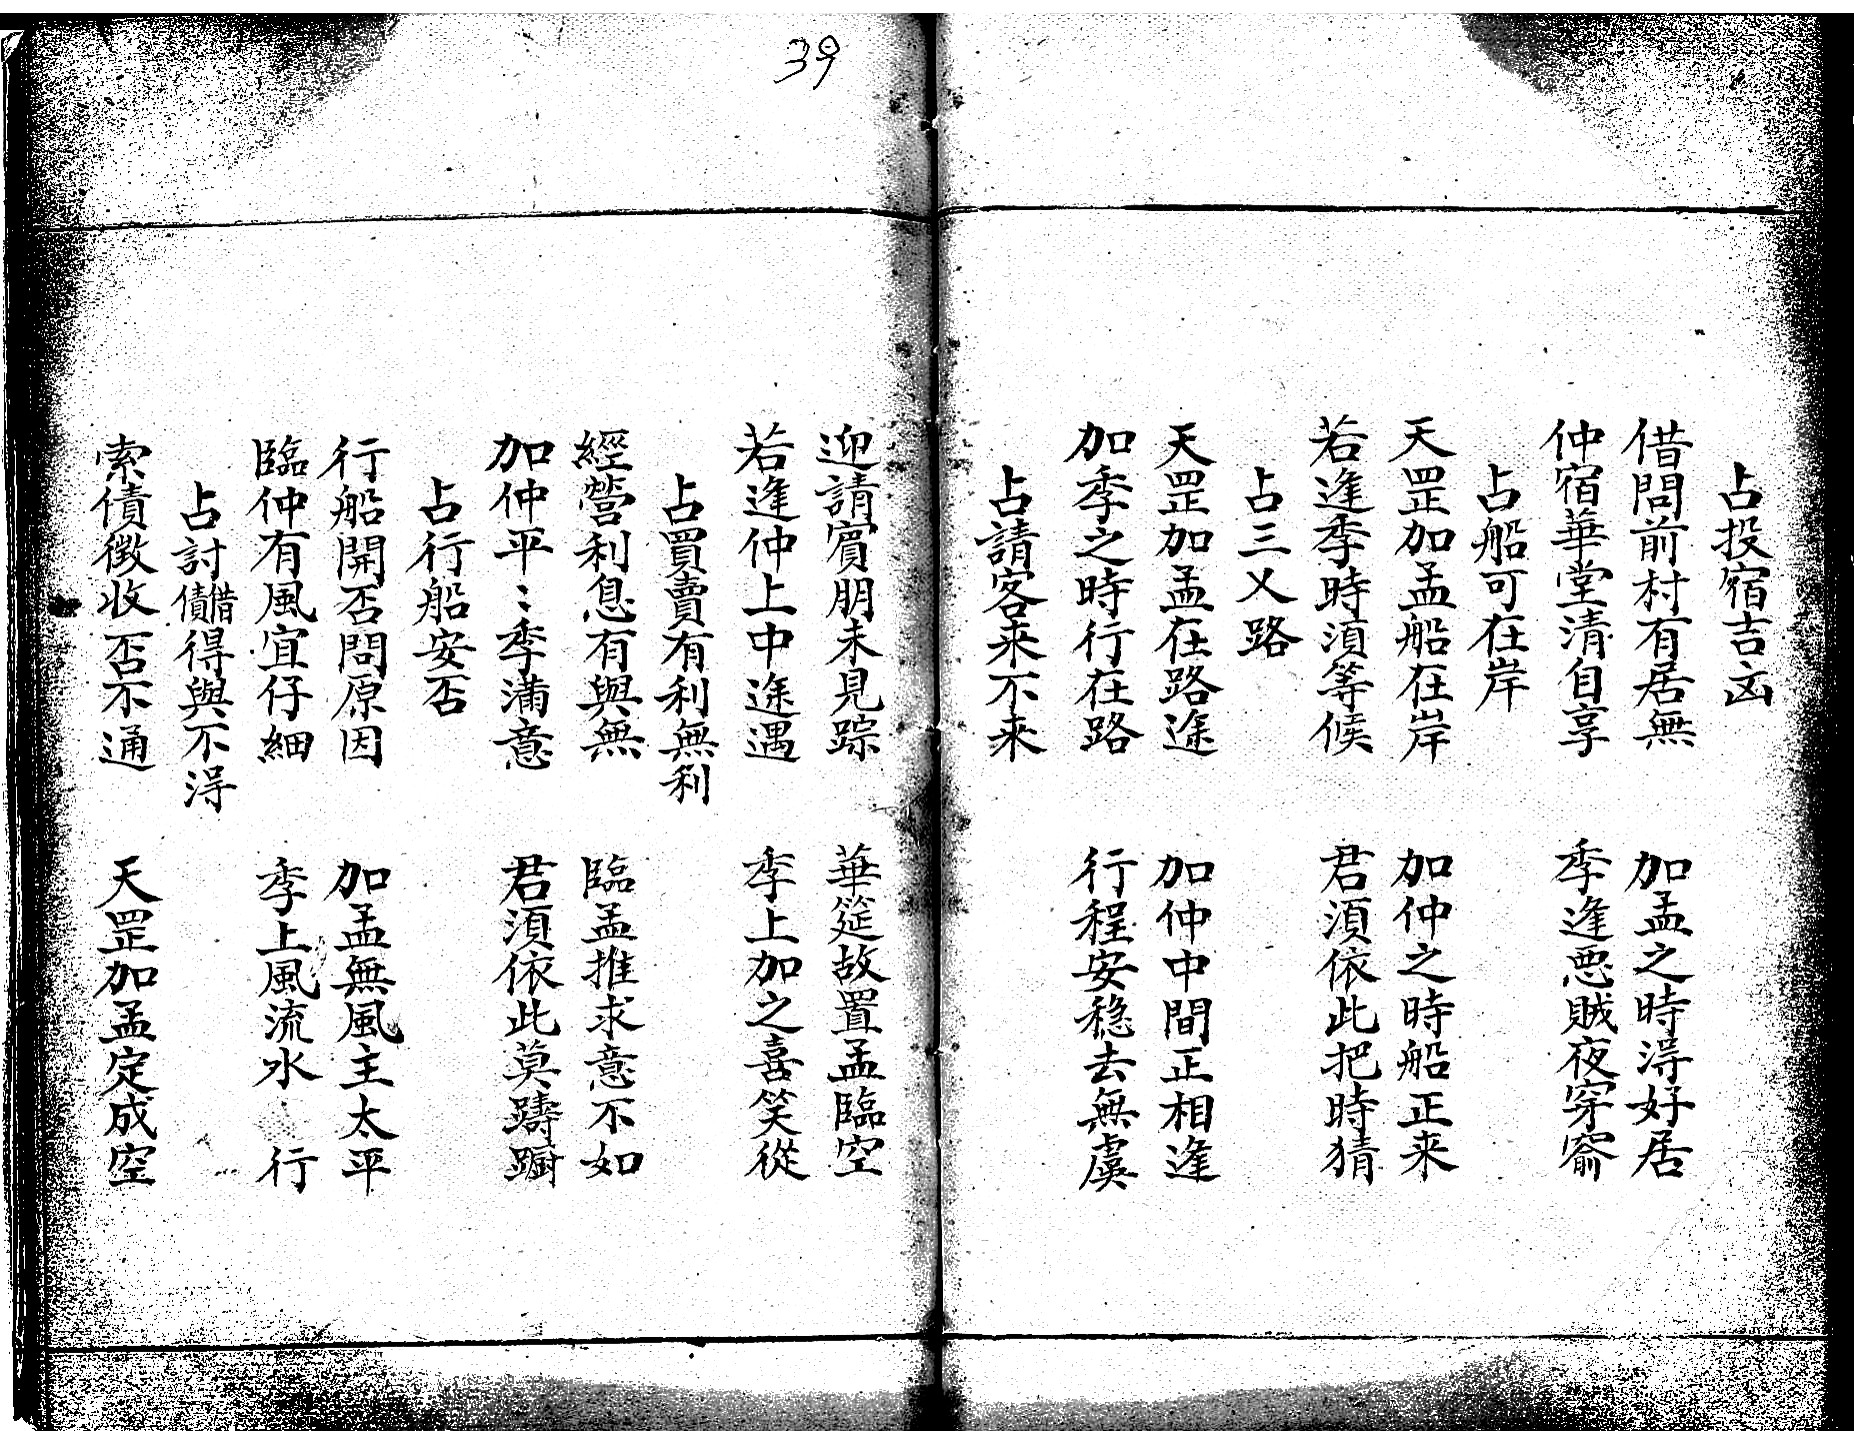 占投宿吉凶
借問前村有居無　加孟之時淂好居
仲宿華堂清自享　季逢悪賊夜穿窬
占船可在岸
天罡加孟船在岸　加仲之時船正来
若逢季時湏等候　君湏依此把時猜
占三乂路
天罡加孟在路途　加仲中間正相逢
加季之時行在路　行程安稳去無虞
占請客来不来
39
迎請賔朋未見踪　華筵故置孟臨空
若逢仲上中途遇　季上加之喜笑從
占買賣有利無利
經營利息有與無　臨孟推求意不如
加仲平〻季滿意　君湏依此莫躊蹰
占行船安否
行船開否問原因　加孟無風主太平
臨仲有風宜仔細　季上風流水　行
占討借債得與不淂
索債徴收否不通　天罡加孟定成空